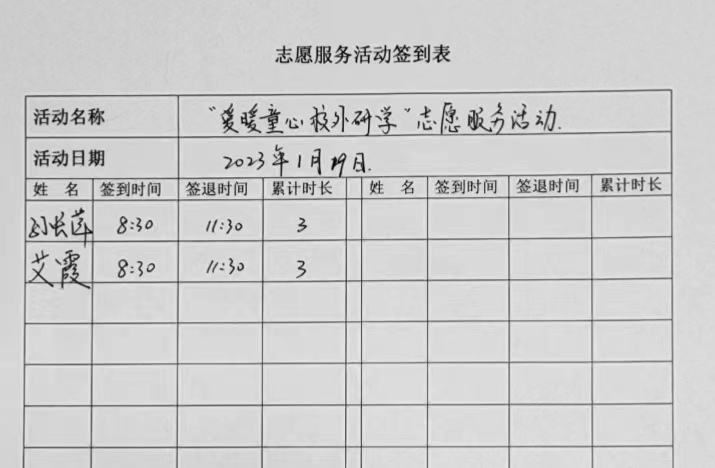 志愿服务活动签到表
活动名称 “爱暖童心校外研学”志愿服务活动.
活动日期 2023年1月19日.
姓 名 签到时间 签退时间 累计时长 姓 名 签到时间 签退时间 累计时长
8:30 11:30 3
艾霞 8:30 11:30 3